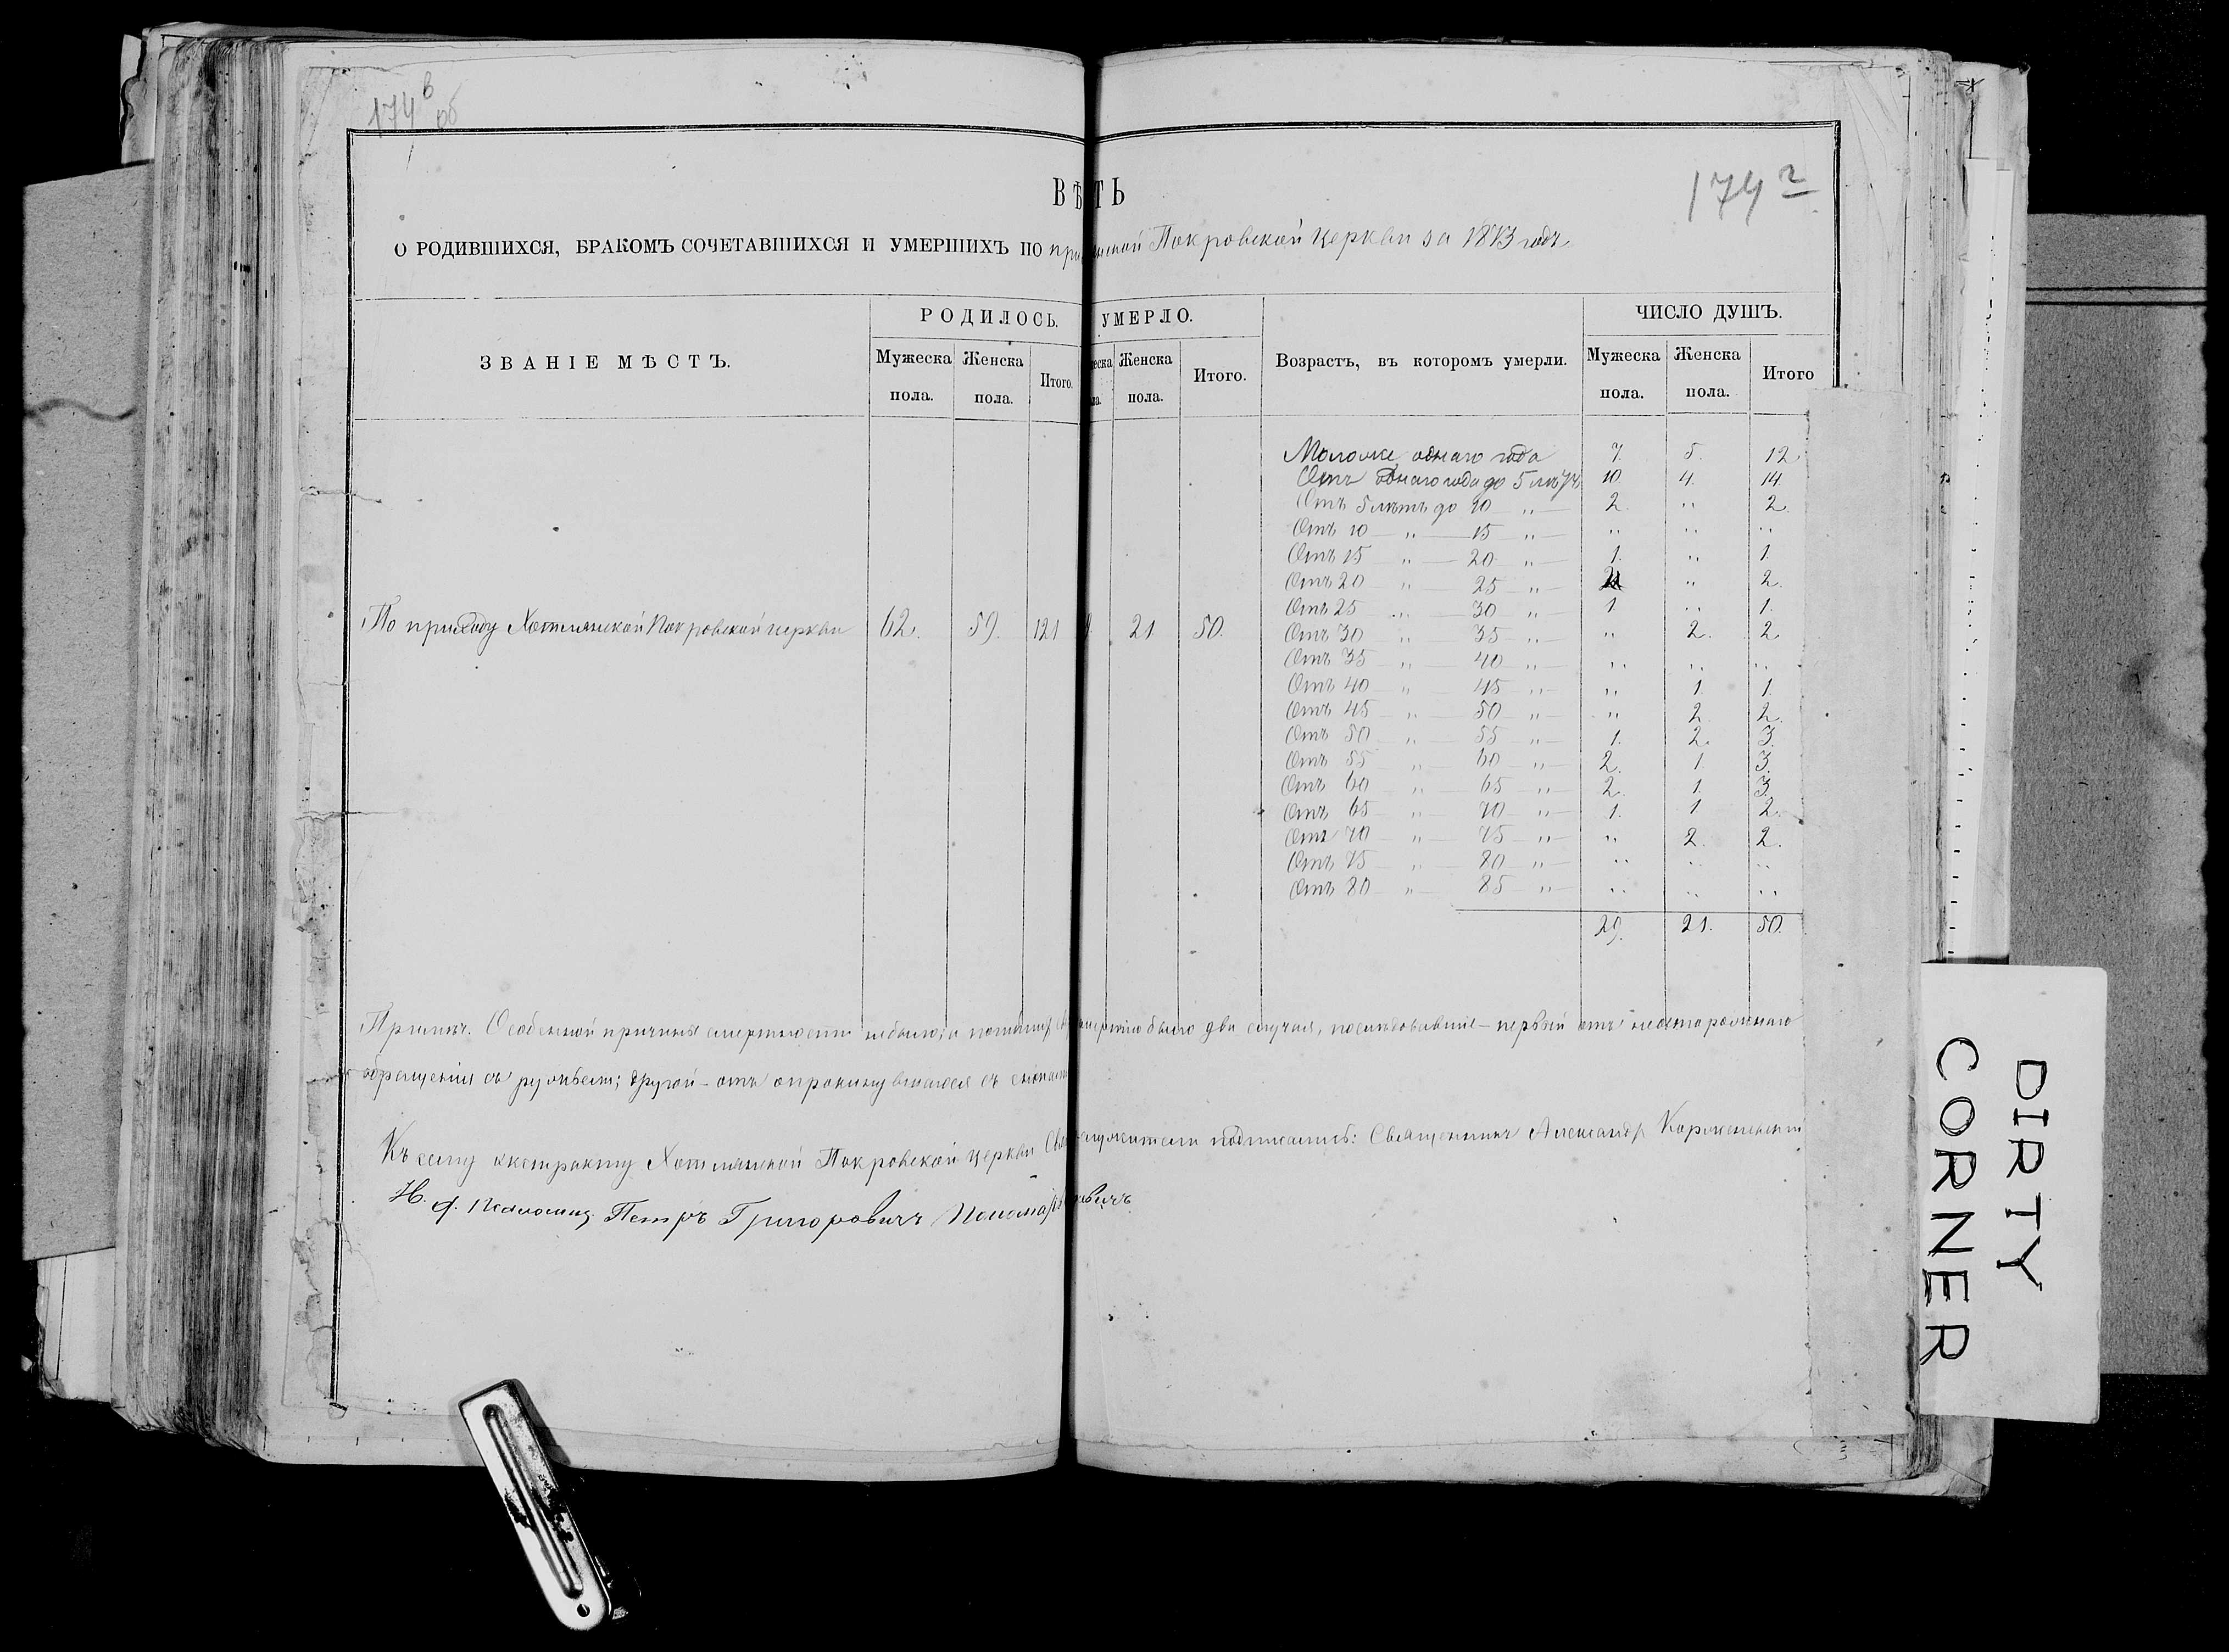 174 в
об
174 г
ВѢ ТЬ
О РОДИВШИХСЯ, БРАКОМЪ СОЧЕТАВШИХСЯ И УМЕРШИХЪ ПО Покровской церкви за 1873 годъ
ЗВАНІЕ МѢСТЪ. РОДИЛОСЬ. УМЕРЛО. Возрастъ, въ которомъ умерли. ЧИСЛО ДУШЪ.
Мужеска пола. Женска пола. Итого. Женска пола. Итого. Мужеска пола. Женска пола. Итого
Моложе однаго года 7. 5. 12.
Отъ однаго года до 5 лѣтъ 10. 4. 14.
Отъ 5 лѣтъ до 10 „ 2. „ 2.
Отъ 10 „ 15 „ „ „ „
Отъ 15 „ 20 „ 1. „ 1.
Отъ 20 „ 25 „ 2 „ 2.
Отъ 25 „ 30 „ 1 „ 1.
По приходу Хотмянской Покровской церкви 62. 59. 121 21. 50. Отъ 30 „ 35 „ „ 2. 2.
Отъ 35 „ 40 „ „ „ „
Отъ 40 „ 45 „ „ 1. 1.
Отъ 45 „ 50 „ „ 2. 2.
Отъ 50 „ 55 „ 1. 2. 3.
Отъ 55 „ 60 „ 2. 1. 3.
Отъ 60 „ 65 „ 2. 1. 3.
Отъ 65 „ 70 „ 1. 1 2.
Отъ 70 „ 75 „ „ 2. 2.
Отъ 75 „ 80 „ „ „ „
Отъ 80 „ 85 „ „ „ „
29. 21. 50.
Примѣч. Особенной причины смертности небыло; а было два случая, послѣдовавшіе – первый отъ неосторожнаго
обращенія съ ружьемъ; другой – отъ опрокинувшагося съ
Къ сему экстракту Хотмянской Покровской церкви подписались: Священникъ Александръ
И. д. Псаломщ. Петръ Григоровичъ
DIRTY
CORNER